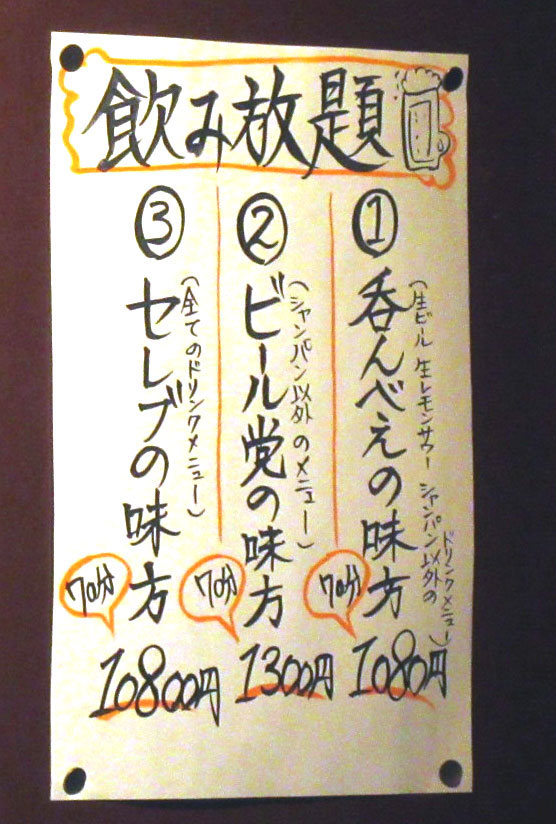 飲み放題
①
呑んべえの味方
(生ビール 生レモンサワー シャンパン以外の
ドリンクメニュー)
70分
1080円
②
ビール党の味方
(シャンパン以外のメニュー)
70分
1300円
③
セレブの味方
(全てのドリンクメニュー)
70分
10800円